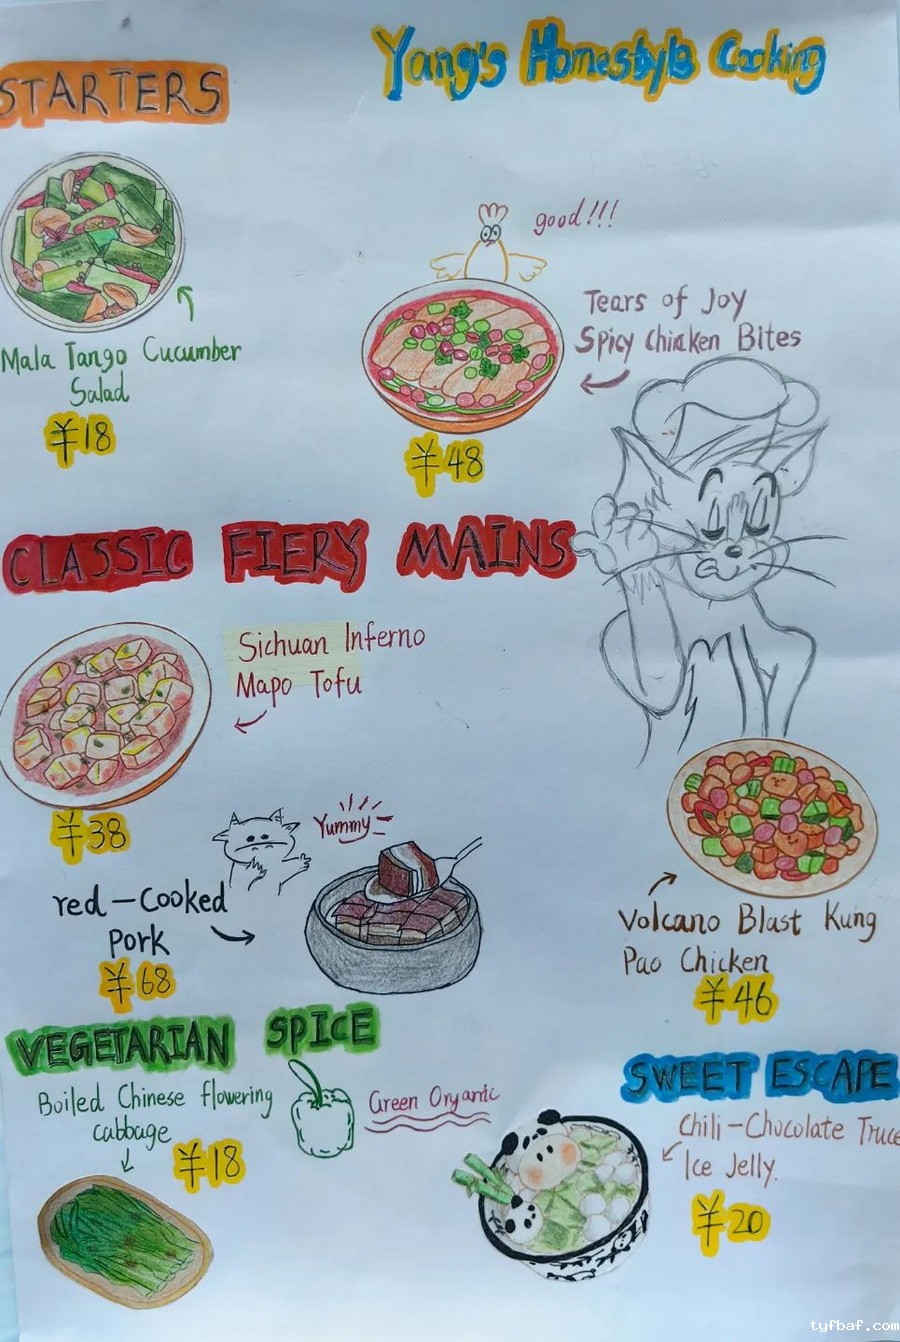 Yang's Homestyle Cooking
STARTERS
good!!!
Tears of Joy
Spicy Chicken Bites
¥48
Mala Tango Cucumber
Salad
¥18
CLASSIC FIERY MAINS
Sichuan Inferno
Mapo Tofu
¥38
Yummy
red-Cooked
Pork
¥68
Volcano Blast Kung
Pao Chicken
¥46
VEGETARIAN SPICE
Boiled Chinese flowering
cabbage
¥18
Green Organic
SWEET ESCAPE
Chili-Chocolate Truce
Ice Jelly.
¥20
tyfbaf.com